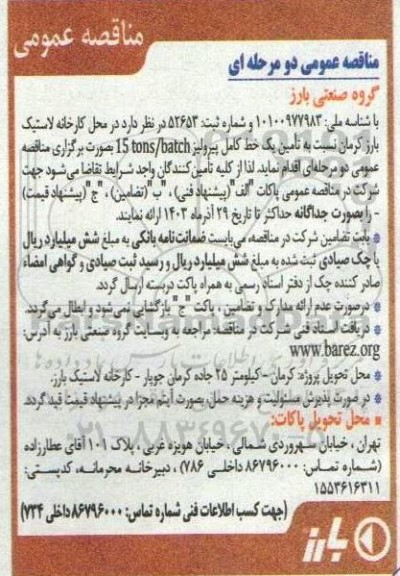 مناقصه عمومی
مناقصه عمومی دو مرحله ای
گروه صنعتی بارز
با شناسه ملی: ۱۰۱۰۰۹۷۷۹۸۳ و شماره ثبت: ۵۲۶۵۳ در نظر دارد در محل کارخانه لاستیک
بارز کرمان نسبت به تأمین یک خط کامل پیرولیز 15 tons/batch بصورت برگزاری مناقصه
عمومی دو مرحله‌ای اقدام نماید. لذا از کلیه تأمین کنندگان واجد شرایط تقاضا می‌شود جهت
شرکت در مناقصه عمومی پاکات "الف" (پیشنهاد فنی) ، "ب" (تضامین) ، "ج" (پیشنهاد قیمت)
- را بصورت جداگانه حداکثر تا تاریخ ۲۹ آذرماه ۱۴۰۳ ارائه نمایند.
بابت تضامین شرکت در مناقصه، می‌بایست ضمانت نامه بانکی به مبلغ شش میلیارد ریال
یا چک صیادی ثبت شده به مبلغ شش میلیارد ریال و رسید ثبت صیادی و گواهی امضاء
صادر کننده چک از دفتر اسناد رسمی به همراه پاکت دربسته ارسال گردد.
درصورت عدم ارائه مدارک و تضامین ، پاکت "ج" بازگشایی نمی‌شود و ابطال می‌گردد.
دریافت اسناد فنی شرکت در مناقصه: مراجعه به وبسایت گروه صنعتی بارز به آدرس:
www.barez.org
محل تحویل پروژه: کرمان - کیلومتر ۲۵ جاده کرمان جوپار - کارخانه لاستیک بارز.
در صورت پذیرش مسئولیت و هزینه حمل، بصورت آیتم مجزا در پیشنهاد قیمت قید گردد.
محل تحویل پاکات:
تهران ، خیابان سهروردی شمالی ، خیابان هویزه غربی ، پلاک ۱۰۱ آقای عطارزاده
(شماره تماس: ۸۶۷۹۶۰۰۰ داخلی ۷۸۶) ، دبیرخانه محرمانه، کدپستی:
۱۵۵۳۶۱۶۳۱۱
(جهت کسب اطلاعات فنی شماره تماس: ۸۶۷۹۶۰۰۰ داخلی ۷۳۴)
بارز